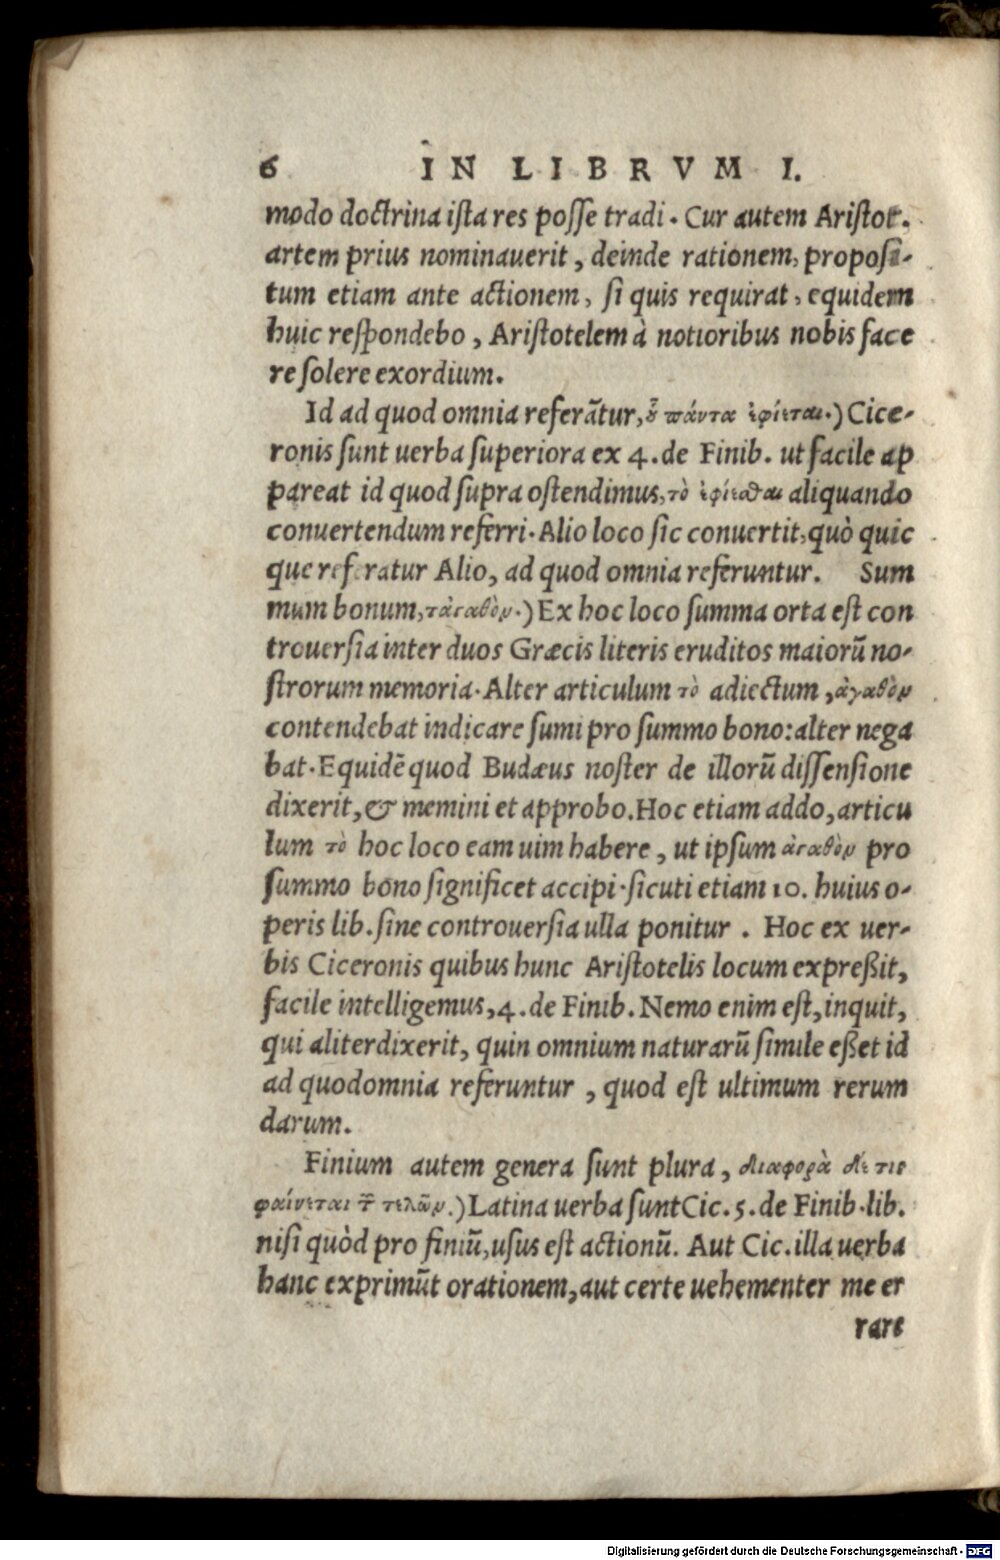 6 IN LIBRVM I.
modo doctrina ista res posse tradi. Cur autem Aristot.
artem prius nominauerit, deinde rationem, proposi-
tum etiam ante actionem, si quis requirat, equidem
huic respondebo, Aristotelem à notioribus nobis face
re solere exordium.
Id ad quod omnia referãtur, οὗ πάντα ἐφίεται.) Cice-
ronis sunt uerba superiora ex 4. de Finib. ut facile ap
pareat id quod supra ostendimus, τὸ ἐφίεσθαι aliquando
conuertendum referri. Alio loco sic conuertit, quò quic
que referatur Alio, ad quod omnia referuntur. Sum
mum bonum, τἀγαθὸν.) Ex hoc loco summa orta est con
trouersia inter duos Græcis literis eruditos maiorũ no-
strorum memoria. Alter articulum τὸ adiectum, ἀγαθὸν
contendebat indicare sumi pro summo bono: alter nega
bat. Equidẽ quod Budæus noster de illorũ dissensione
dixerit, & memini et approbo. Hoc etiam addo, articu
lum τὸ hoc loco eam uim habere, ut ipsum ἀγαθὸν pro
summo bono significet accipi. sicuti etiam 10. huius o-
peris lib. sine controuersia ulla ponitur. Hoc ex uer-
bis Ciceronis quibus hunc Aristotelis locum expreßit,
facile intelligemus, 4. de Finib. Nemo enim est, inquit,
qui aliter dixerit, quin omnium naturarũ simile eßet id
ad quod omnia referuntur, quod est ultimum rerum
darum.
Finium autem genera sunt plura, διαφορὰ δέ τις
φαίνεται τ͂ τελῶν.) Latina uerba sunt Cic. 5. de Finib. lib.
nisi quòd pro finiũ, usus est actionũ. Aut Cic. illa uerba
hanc exprimũt orationem, aut certe uehementer me er
rare
Digitalisierung gefördert durch die Deutsche Forschungsgemeinschaft - DFG